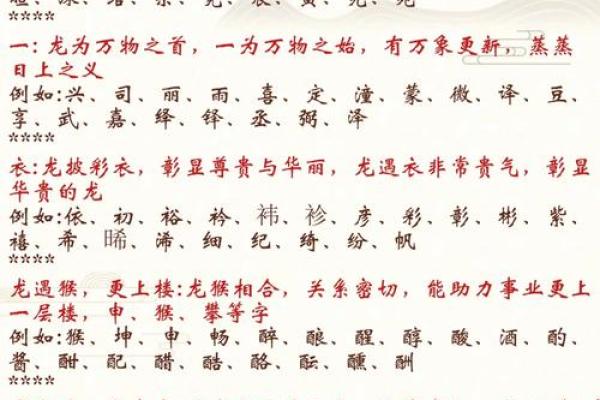 ****
一:龙为万物之首，一为万物之始，有万象更新，蒸蒸
日上之义
例如:兴、司、丽、雨、喜、定、潼、蒙、微、译、豆、
享、武、嘉、绎、铎、丞、弼、泽
****
衣:龙披彩衣，彰显尊贵与华丽，龙遇衣非常贵气，彰显
华贵的龙
例如:依、初、裕、衿、祎、袗、彦、彩、彰、彬、紫、
禧、希、晞、浠、细、纪、绮、纷、帆
****
龙遇猴，更上楼:龙猴相合，关系密切，能助力事业更上
一层楼，申、猴、攀等字
例如:猴、坤、申、畅、醉、酿、醒、醇、酸、酒、酌、
酱、酣、配、醋、酷、酪、酝、醺、酬
****